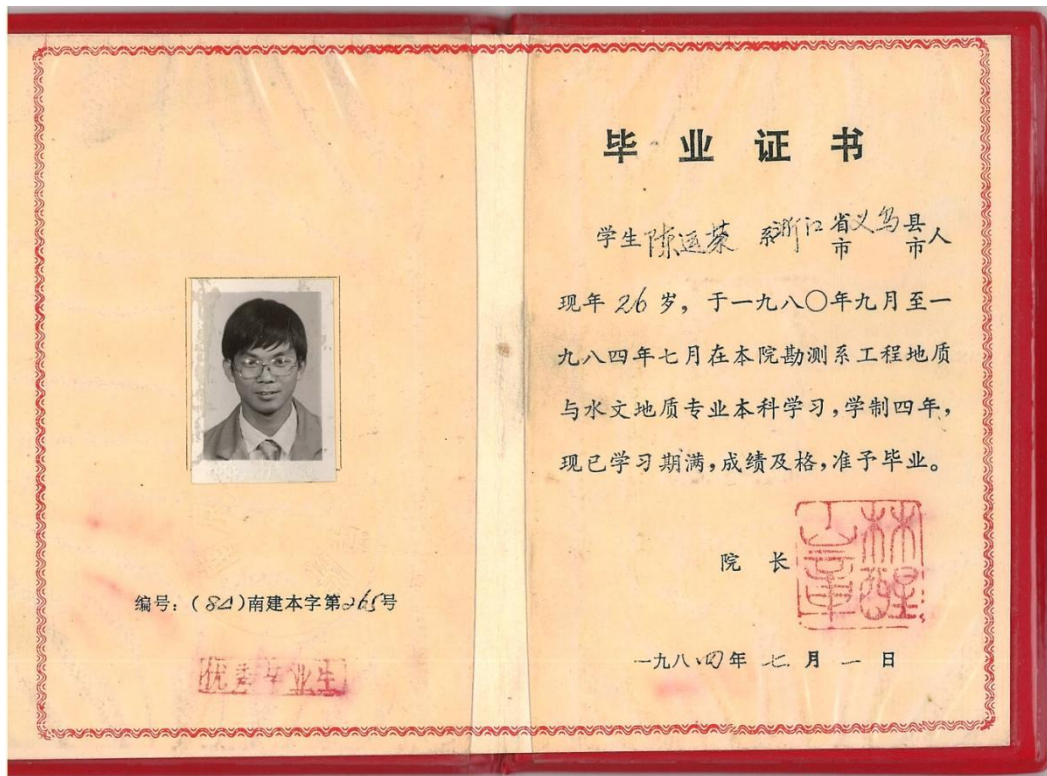 编号：(84)南建本字第265号
优秀毕业生
毕业证书
学生陈运 系浙江省市义乌县市人
现年26岁，于一九八〇年九月至一
九八四年七月在本院勘测系工程地质
与水文地质专业本科学习，学制四年，
现已学习期满，成绩及格，准予毕业。
院长
林醒山章
一九八四年七月一日